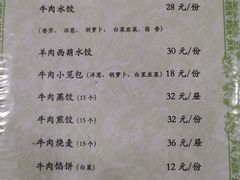 牛肉水饺 28 元/份
(香芹、洋葱、胡萝卜、白菜韭菜、茴香)
羊肉西葫水饺 30 元/份
牛肉小笼包(洋葱、胡萝卜、白菜韭菜) 18 元/份
牛肉蒸饺(15个) 32 元/屉
牛肉煎饺(15个) 32 元/份
牛肉烧麦 36 元/屉
牛肉馅饼(白菜) 12 元/份